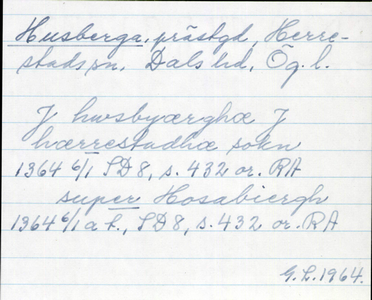 Husberga, prästgd, Herre-
stads sn, Dals hd, Ög. l.
J hwsbyærghæ J
hærrestadhæ sokn
1364 6/1 SD 8, s. 432 or. RA
super Hosabiergh
1364 6/1 a.t., SD 8, s. 432 or. RA
G.L. 1964.